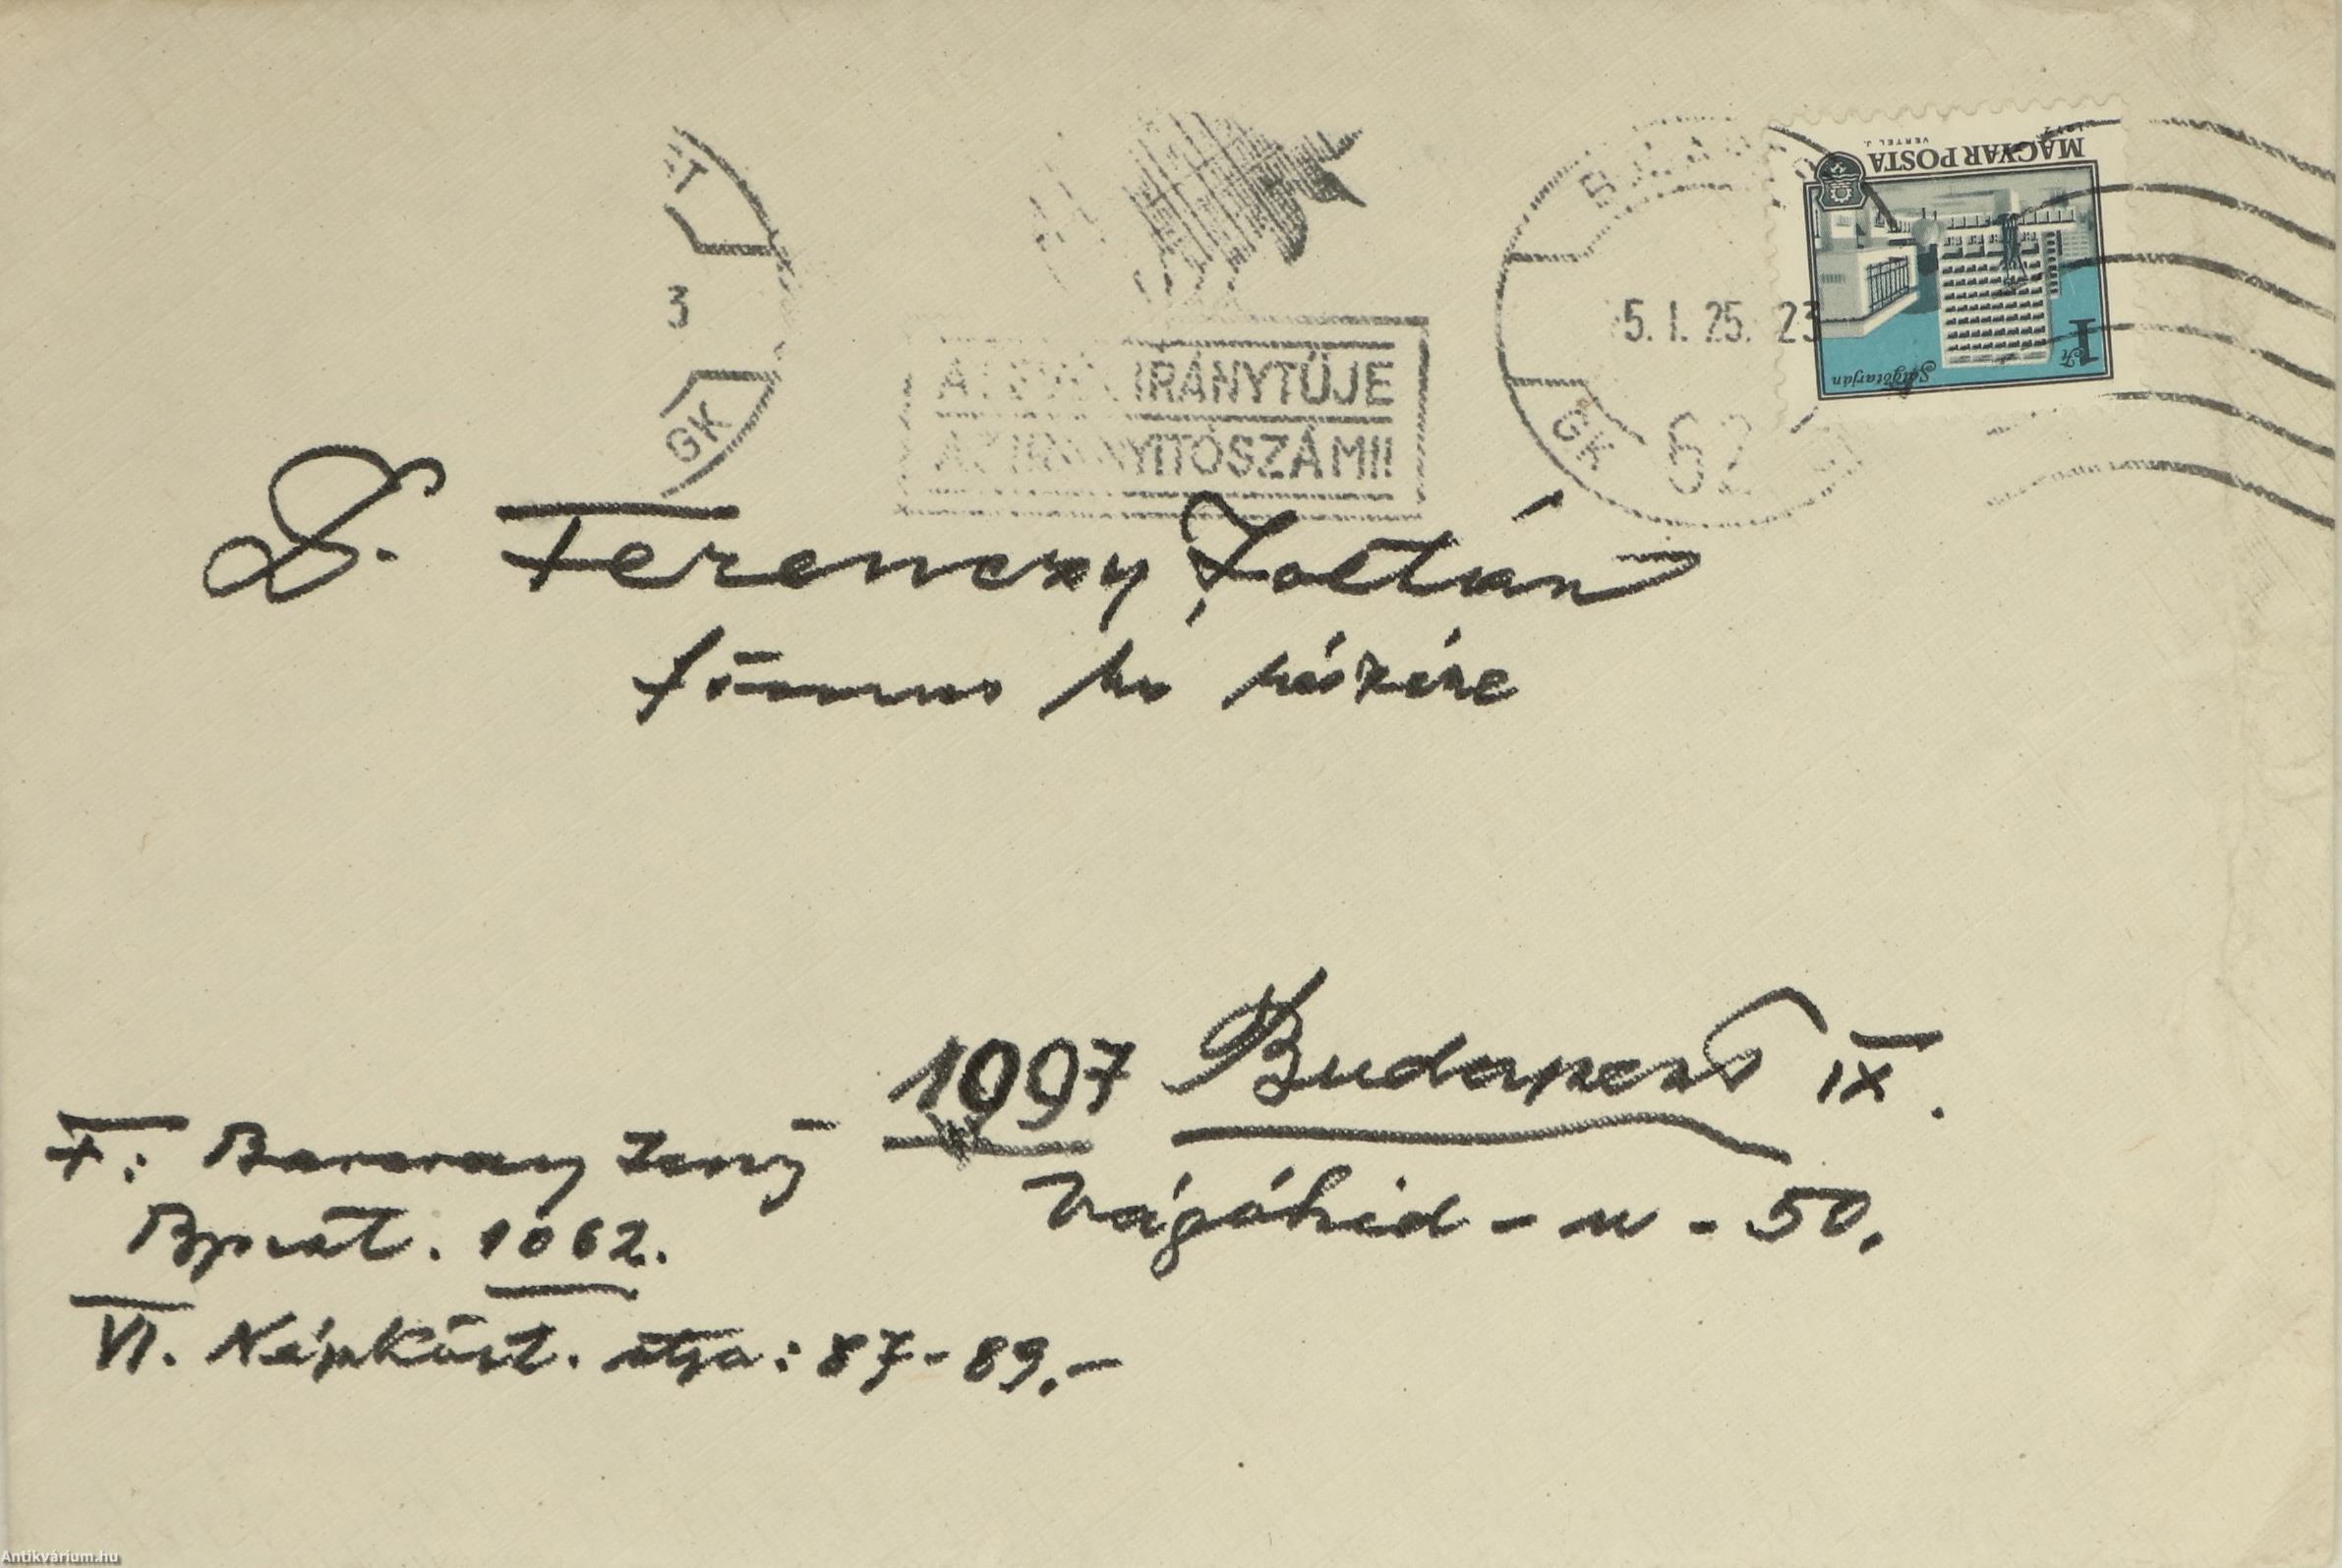 T
3
GK
IRÁNYTŰJE
AZ IRÁNYITÓSZÁM!!
5. I. 25. 23
GK 62
MAGYAR POSTA
VERTEL J.
Salgótarján
1 Ft
S. Ferenczy Zoltán
főorvos úr részére
1097 Budapest IX.
Vágóhíd - u - 50.
F: Barcsay Jenő
Bpest. 1062.
VI. Népközt. útja: 87-89.-
Antikvárium.hu